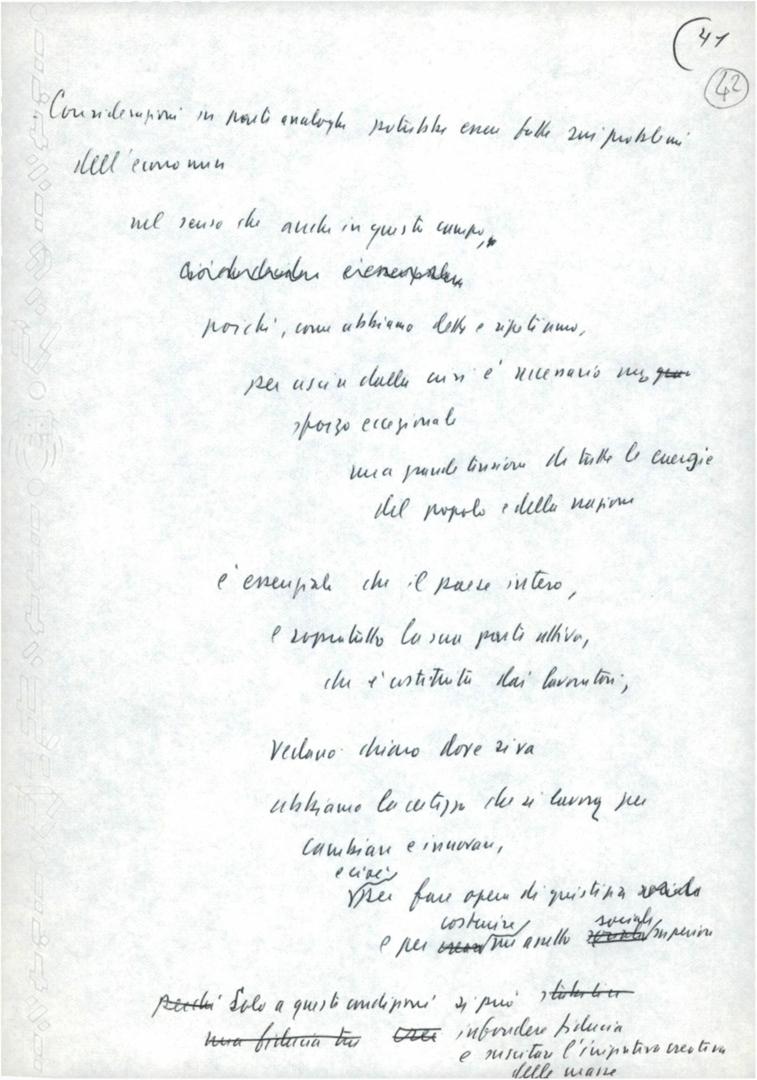 41
42
Considerazioni in parte analoghe potrebbe essere fatte sui problemi
dell'economia
nel senso che anche in questo campo,
poiché, come abbiamo detto e ripetiamo,
per uscire dalla crisi è necessario uno
sforzo eccezionale
una grande tensione di tutte le energie
del popolo e della nazione
è essenziale che il paese intero,
e sopratutto la sua parte attiva,
che è costituita dai lavoratori,
vedano chiaro dove si va
abbiamo la certezza che si lavora per
cambiare e innovare,
e cioè
per fare opera di giustizia sociale
costruire sociale
e per creare un assetto sociale superiore
perché Solo a queste condizioni si può stabilire
una fiducia tra crea infondere fiducia
e suscitare l'iniziativa creativa
delle masse